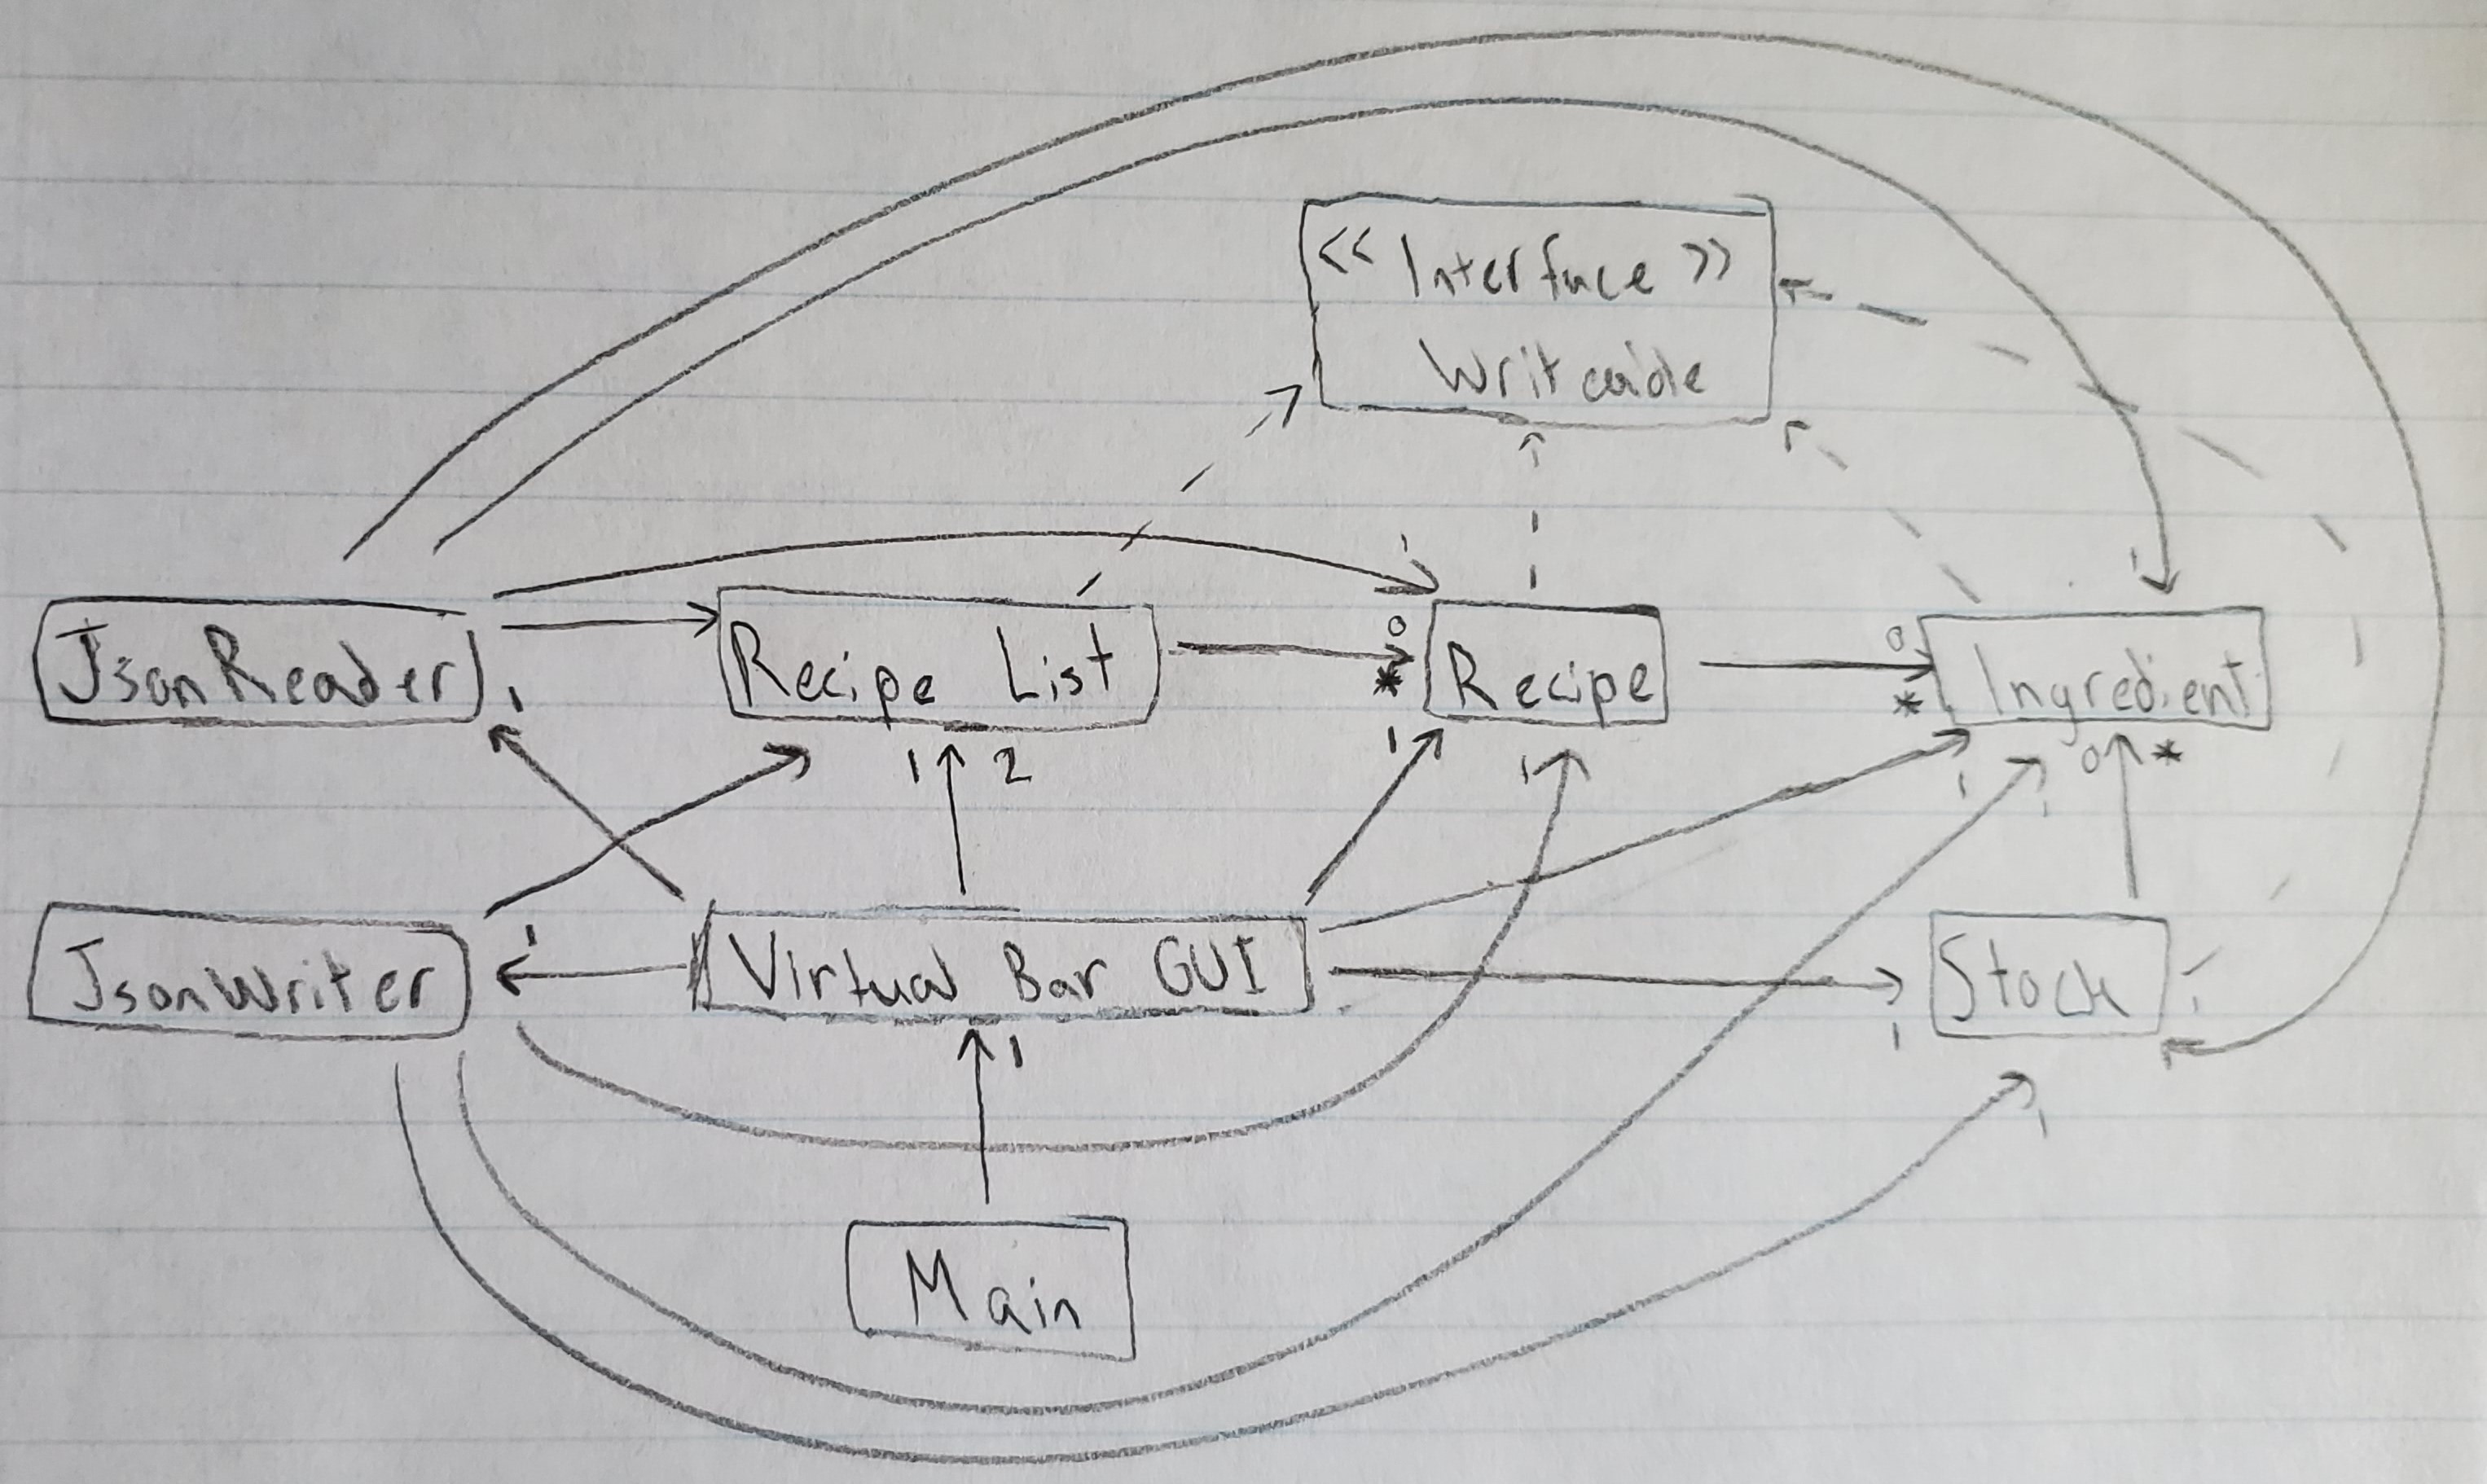 << Interface >>
Writeable
1
1
JsonReader
1
Recipe List
0
*
Recipe
0
*
Ingredient
1 2
1
1
1
1
0 *
JsonWriter
1
Virtual Bar GUI
1
Stock
1
1
1
Main